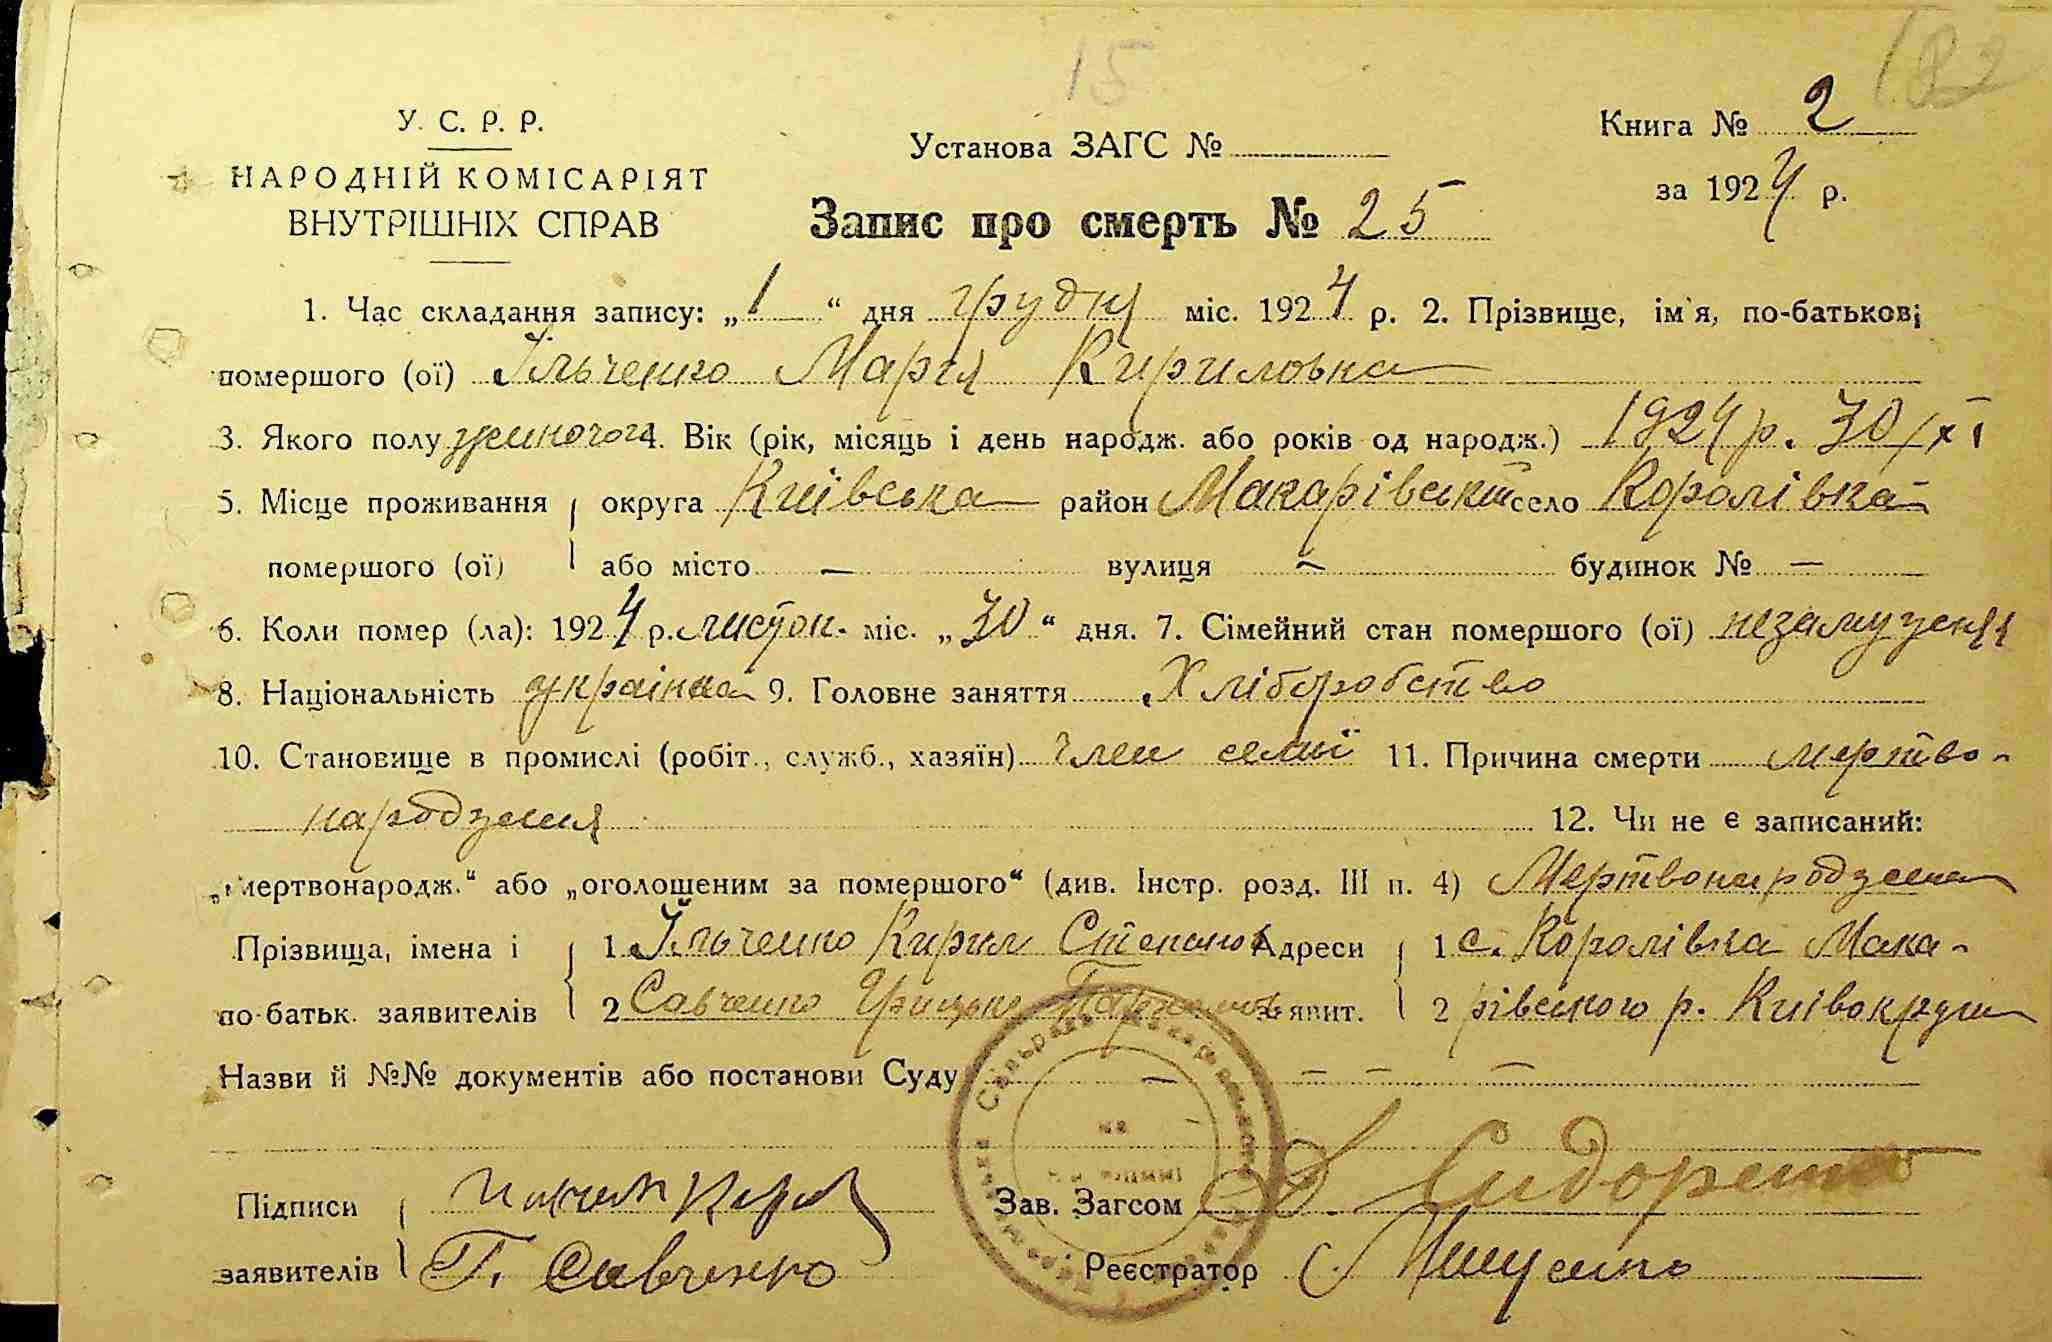 15
182
У. С. Р. Р.
НАРОДНІЙ КОМІСАРІЯТ
ВНУТРІШНІХ СПРАВ
Установа ЗАГС №
Книга № 2
за 1924 р.
Запис про смерть № 25
1. Час складання запису: „1“ дня грудня міс. 1924 р. 2. Прізвище, ім'я, по-батькові
помершого (ої) Ільченко Марія Кириловна
3. Якого полу жиночого 4. Вік (рік, місяць і день народж. або років од народж.) 1924 р. 30/XI
5. Місце проживання округа Київська район Макарівський село Королівка
помершого (ої) або місто — вулиця — будинок № —
6. Коли помер (ла): 1924 р. листоп. міс. „30“ дня. 7. Сімейний стан помершого (ої) незамужня
8. Національність українка 9. Головне заняття Хліборобство
10. Становище в промислі (робіт., служб., хазяїн) член семії 11. Причина смерти мертво-
народження
12. Чи не є записаний:
„мертвонародж.“ або „оголошеним за помершого“ (див. Інстр. розд. III п. 4) Мертвонароджена
Прізвища, імена і 1 Ільченко Кирил Степанов Адреси 1 с. Королівка Мака-
по-батьк. заявителів 2 Савченко Грицько заявит. 2 рівського р. Київокруги
Назви й №№ документів або постанови Суду — — — —
Підписи Зав. Загсом Д. Сидоренко
заявителів Г. Савченко Реєстратор Мищенко